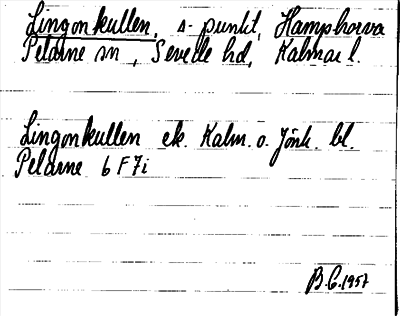 Lingonkullen, s-punkt, Hamphorva
Pelarne sn, Sevede hd, Kalmar l.
Lingonkullen ek. Kalm. o. Jönk. bl.
Pelarne 6 F 7i
B.G. 1957